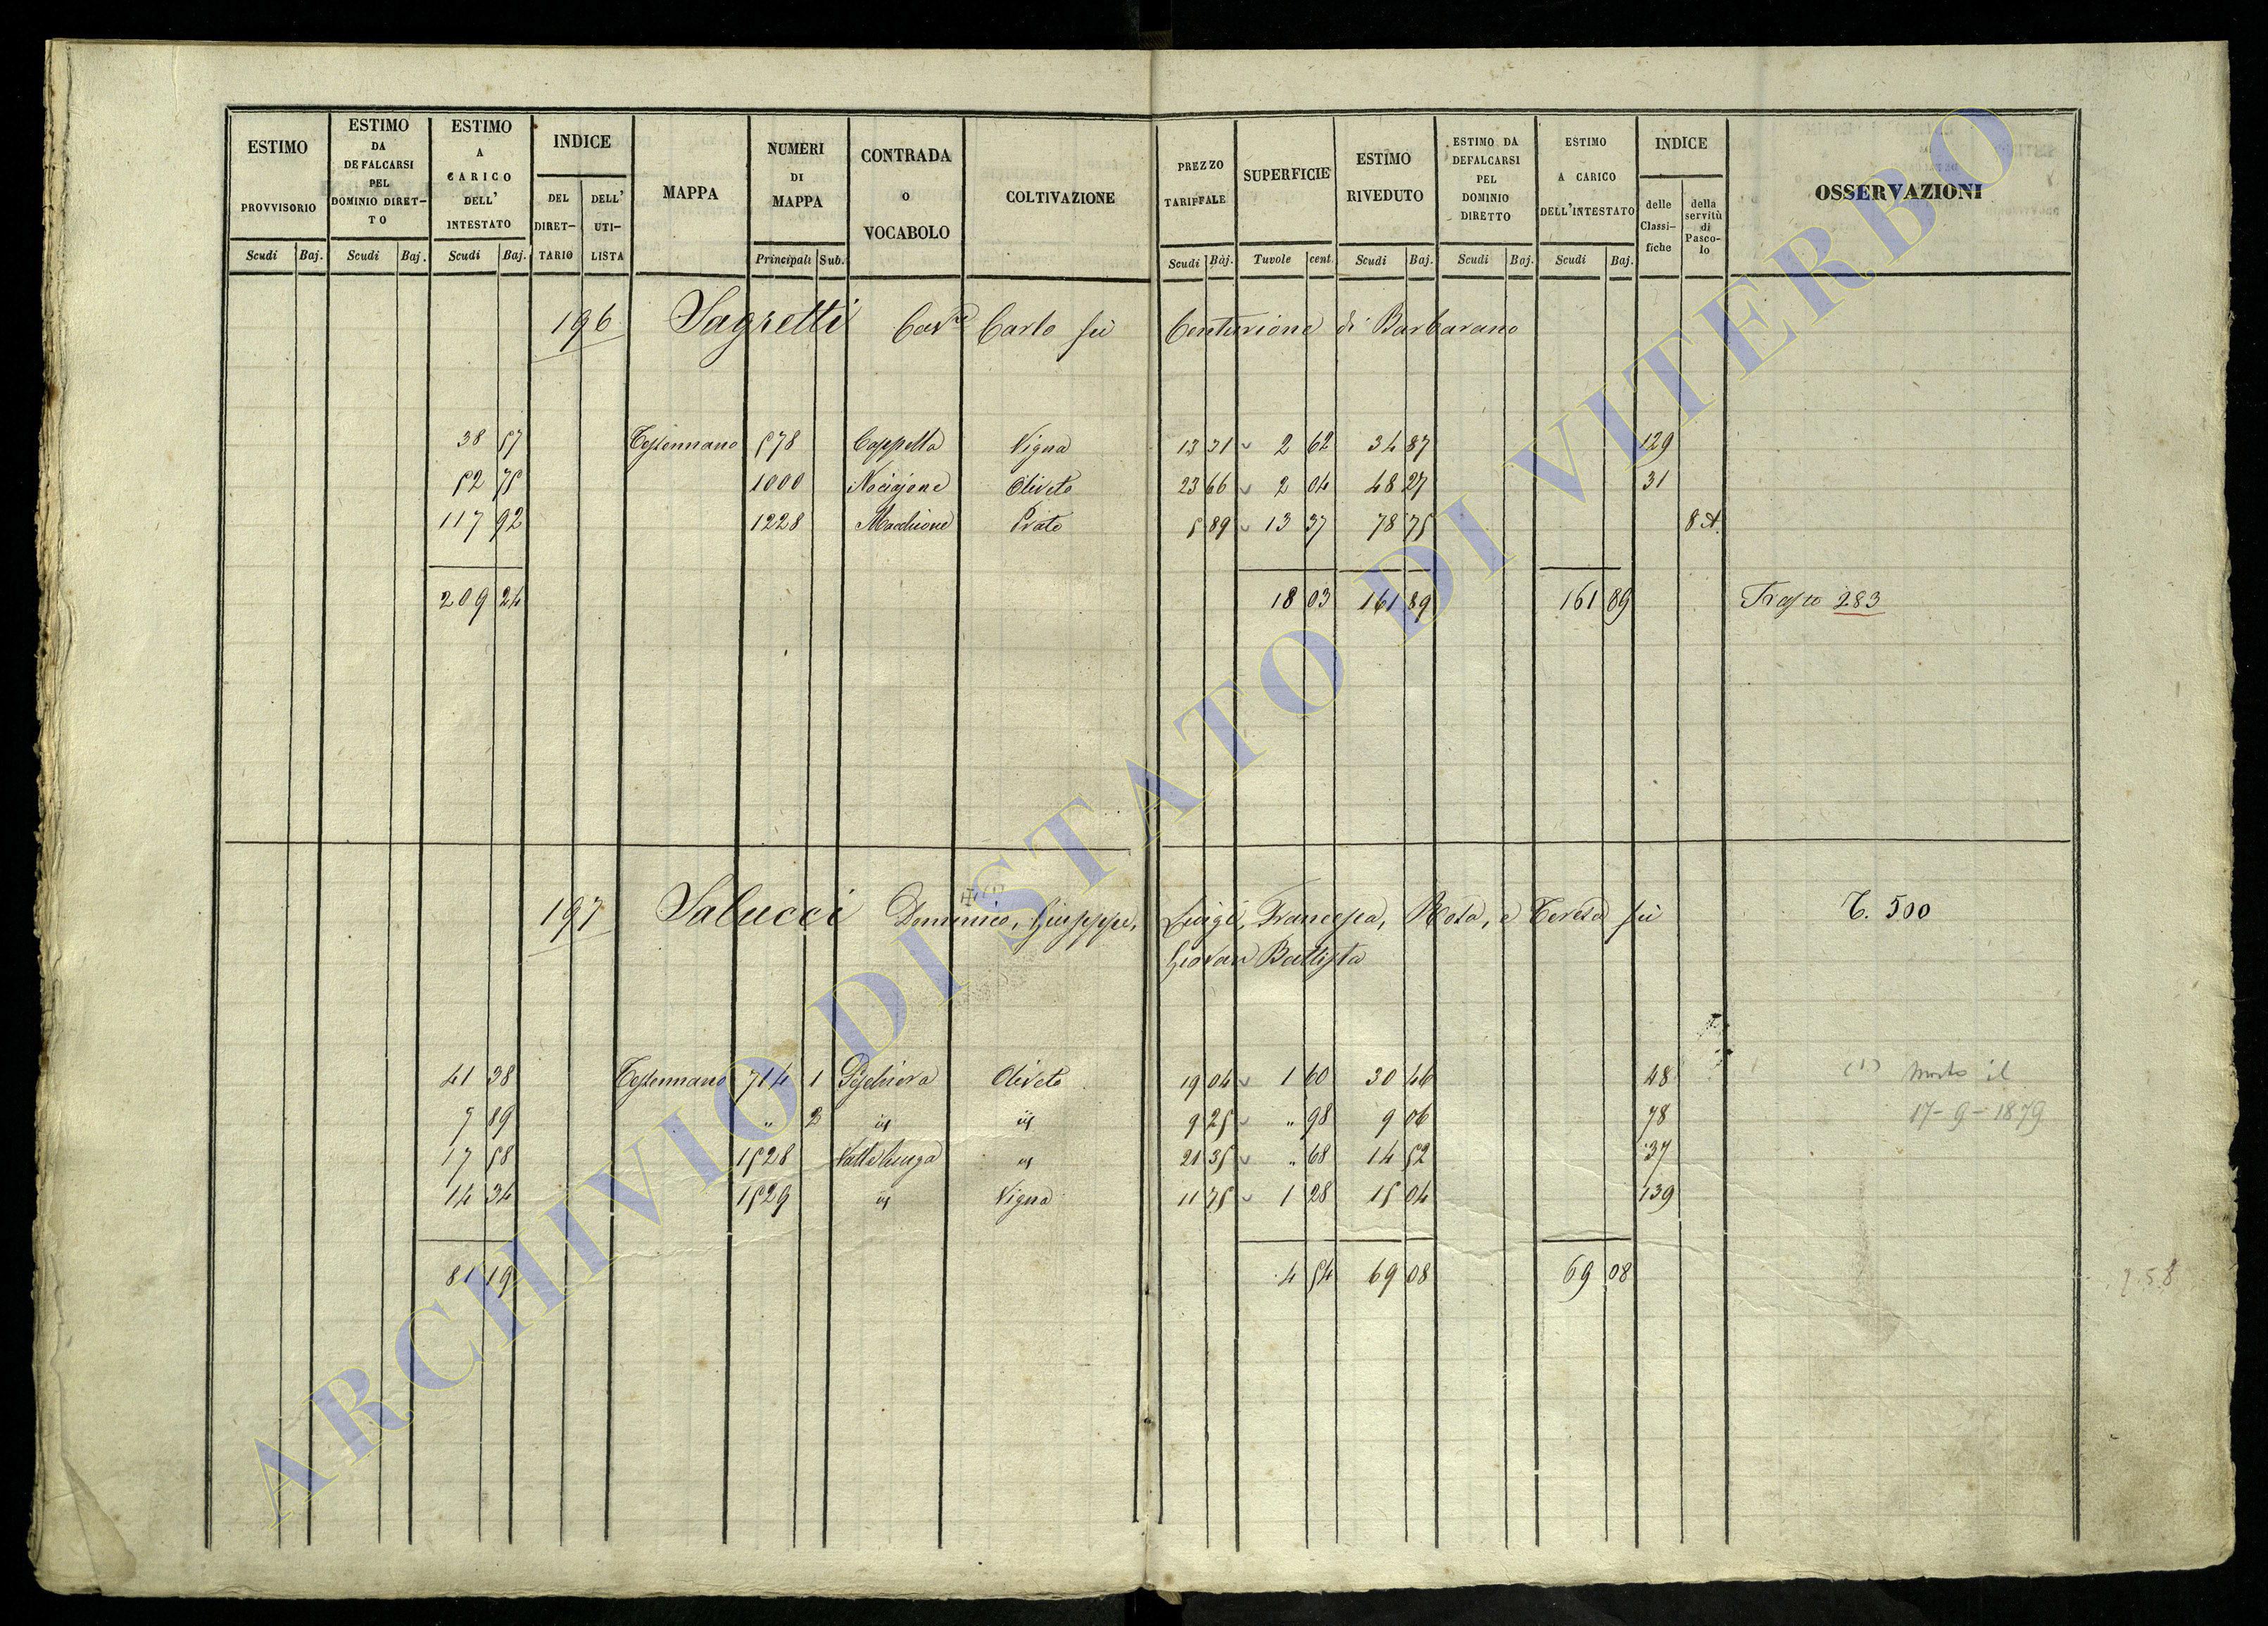 ESTIMO PROVVISORIO
ESTIMO DA DEFALCARSI PEL DOMINIO DIRET-TO
ESTIMO A CARICO DELL' INTESTATO
INDICE
DEL DIRET-TARIO
DELL' UTI-LISTA
MAPPA
NUMERI DI MAPPA
CONTRADA o VOCABOLO
COLTIVAZIONE
PREZZO TARIFFALE
SUPERFICIE
ESTIMO RIVEDUTO
ESTIMO DA DEFALCARSI PEL DOMINIO DIRETTO
ESTIMO A CARICO DELL'INTESTATO
INDICE
delle Classi-fiche
della servitù di Pasco-lo
OSSERVAZIONI
Scudi Baj. Scudi Baj. Scudi Baj. Principali Sub. Scudi Baj. Tavole cent. Scudi Baj. Scudi Baj. Scudi Baj.
196 Sagretti Cav.re Carlo fu Centurione di Barbarano
38 57 Tessennano 578 Cappella Vigna 13 31 2 62 34 87 129
52 75 1000 Oliveto 23 66 2 04 48 27 31
117 92 1228 Macchione Prato 5 89 13 37 78 75 8 A.
209 24 18 03 161 89 161 89 Trasto 283
197 Salucci Domenico, Giuseppe, Luigi, Francesca, Rosa, e Teresa fu T. 500
(1)
Giovan Battista
41 38 Tessennano 714 1 Peschiera Oliveto 19 04 1 60 30 46 48 (1) Morto il
7 89 " 2 id id 9 25 " 98 9 06 78 17-9-1879
17 58 1528 Valle lunga id 21 35 " 68 14 52 37
14 34 1529 id Vigna 11 75 1 28 15 04 139
81 19 4 54 69 08 69 08
ARCHIVIO DI STATO DI VITERBO